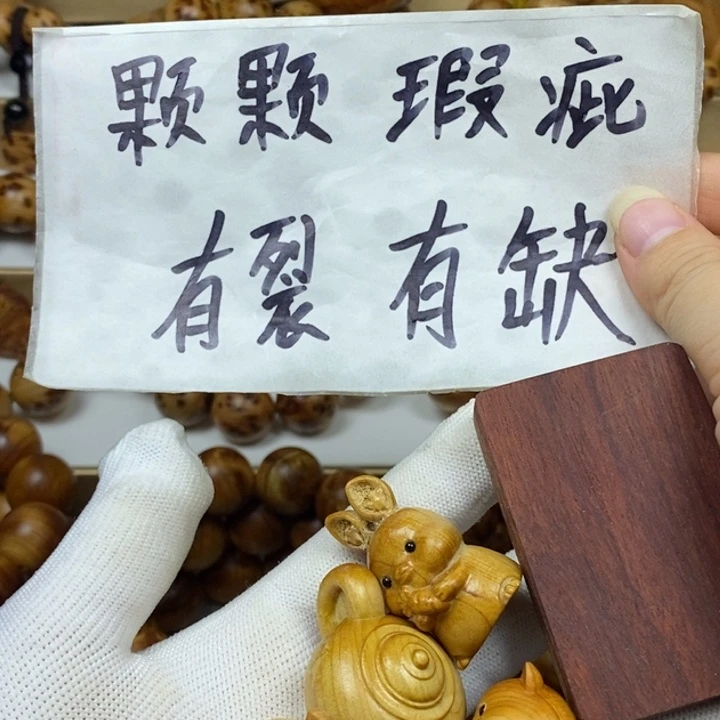 颗颗 瑕疵
有裂 有缺